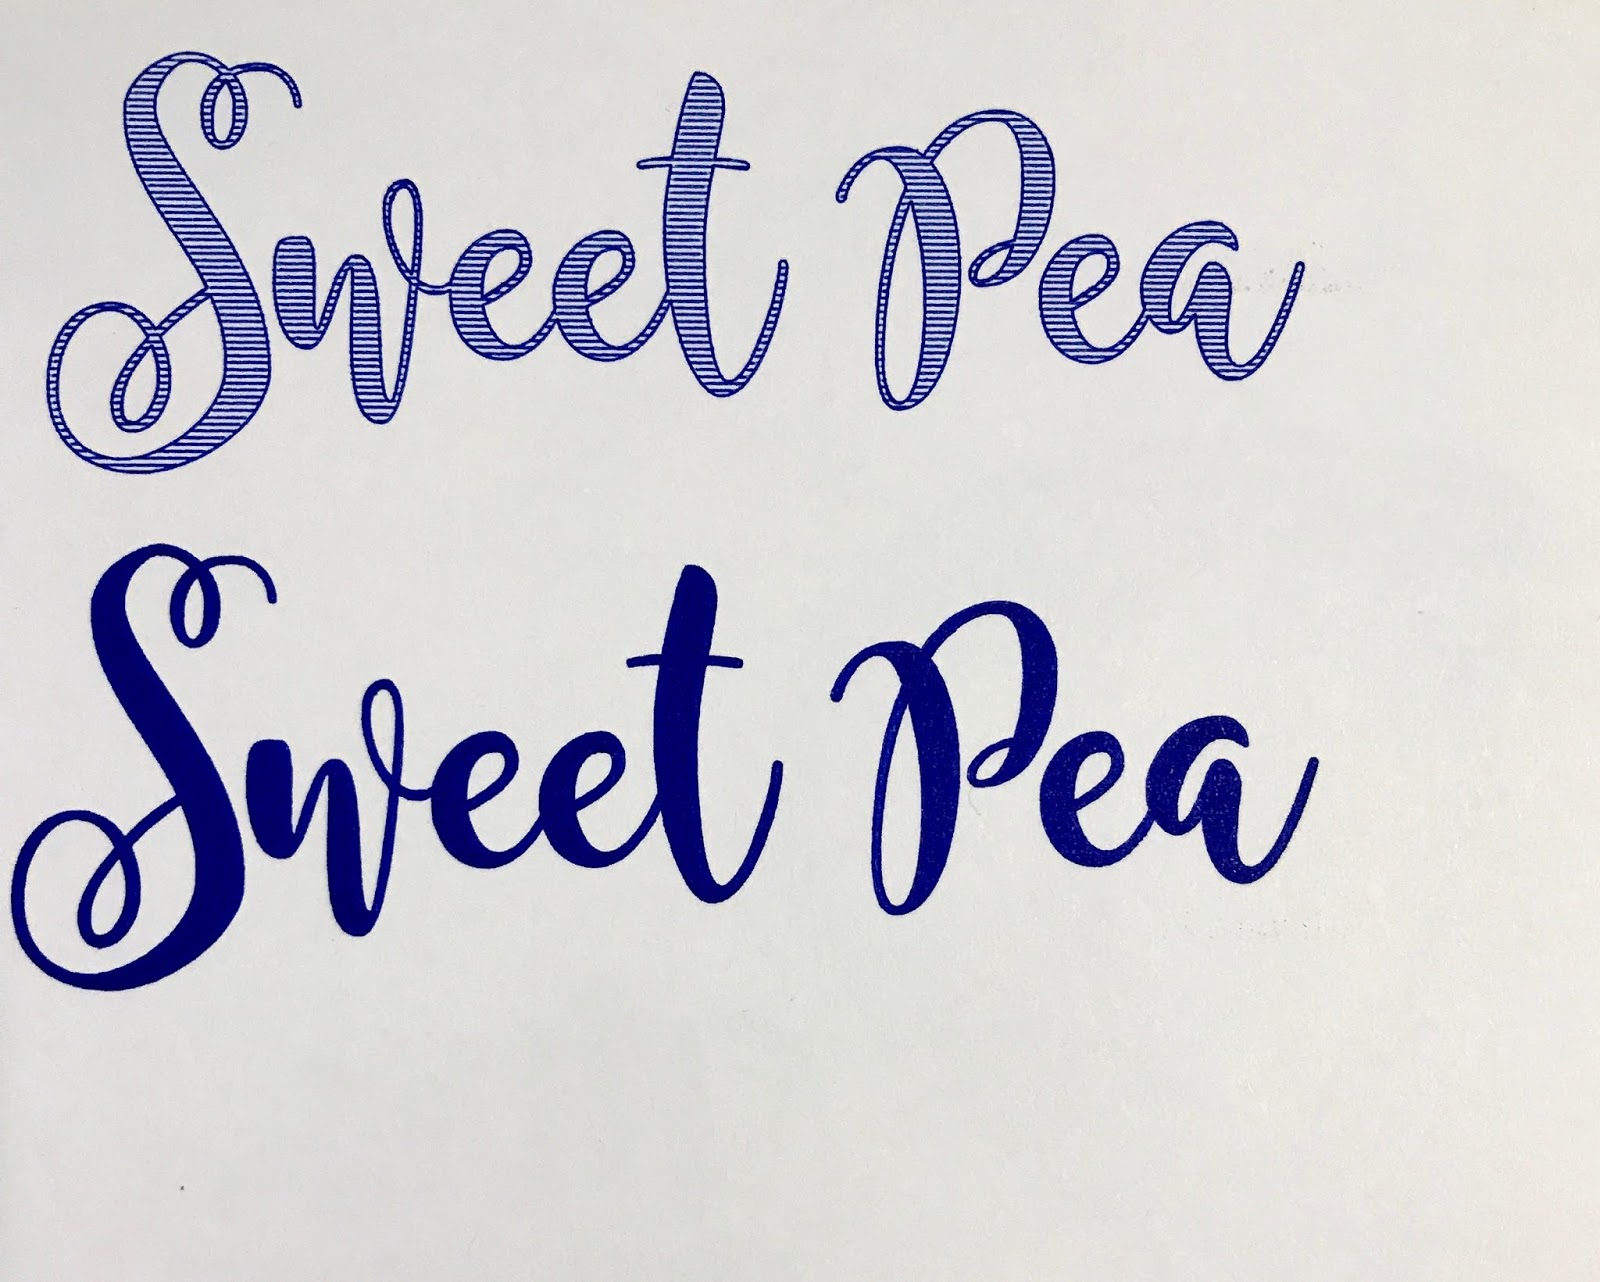 Sweet Pea
Sweet Pea